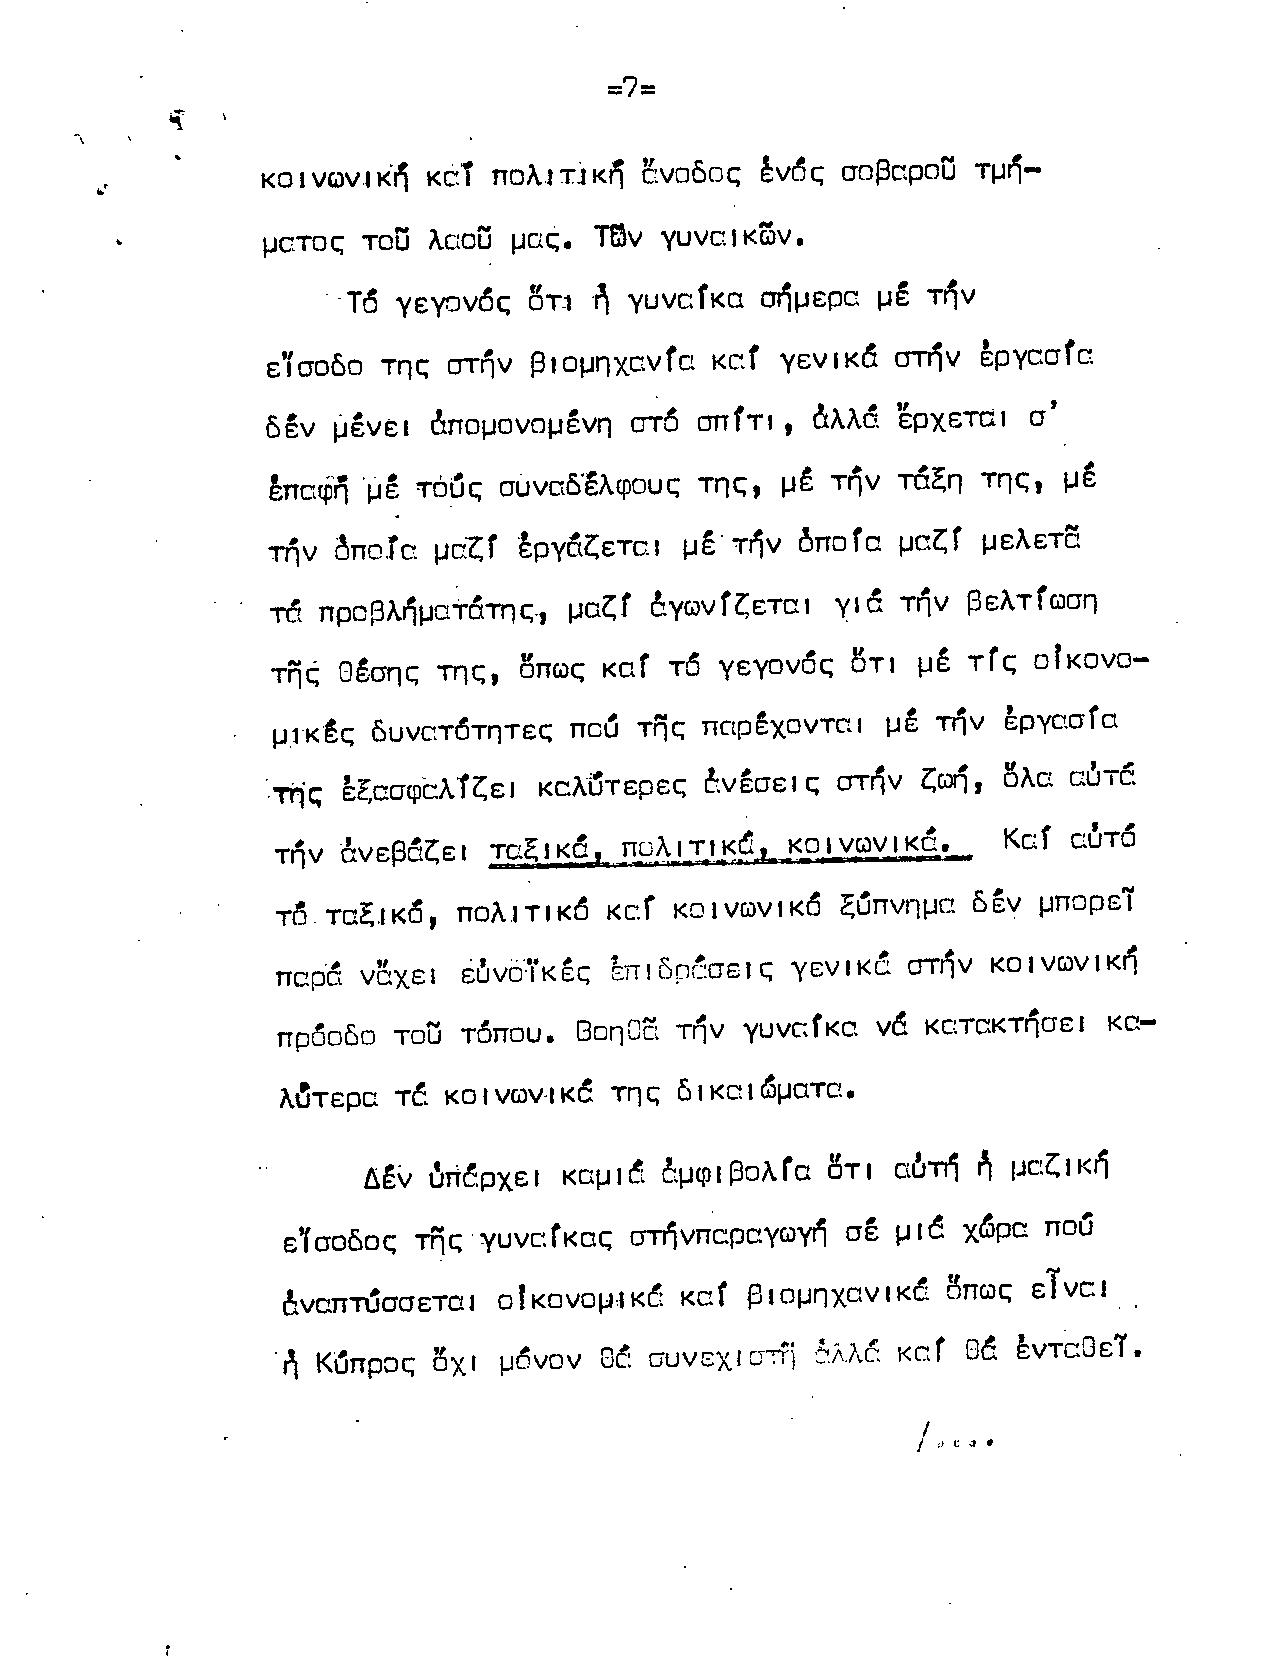 =7=
κοινωνική καί πολιτική ἄνοδος ἑνός σοβαροῦ τμή-
ματος τοῦ λαοῦ μας. Τῶν γυναικῶν.
Τό γεγονός ὅτι ἡ γυναίκα σήμερα μέ τήν
εἴσοδο της στήν βιομηχανία καί γενικά στήν ἐργασία
δέν μένει ἀπομονομένη στό σπίτι, ἀλλά ἔρχεται σ'
ἐπαφή μέ τούς συναδέλφους της, μέ τήν τάξη της, μέ
τήν ὁποία μαζί ἐργάζεται μέ τήν ὁποία μαζί μελετᾶ
τά προβλήματάτης, μαζί ἀγωνίζεται γιά τήν βελτίωση
τῆς θέσης της, ὅπως καί τό γεγονός ὅτι μέ τίς οἰκονο-
μικές δυνατότητες πού τῆς παρέχονται μέ τήν ἐργασία
της ἐξασφαλίζει καλύτερες ἀνέσεις στήν ζωή, ὅλα αὐτά
τήν ἀνεβάζει ταξικά, πολιτικά, κοινωνικά. Καί αὐτό
τό ταξικό, πολιτικό καί κοινωνικό ξύπνημα δέν μπορεῖ
παρά νἄχει εὐνοϊκές ἐπιδράσεις γενικά στήν κοινωνική
πρόοδο τοῦ τόπου. Βοηθᾶ τήν γυναίκα νά κατακτήσει κα-
λύτερα τά κοινωνικά της δικαιώματα.
Δέν ὑπάρχει καμιά ἀμφιβολία ὅτι αὐτή ἡ μαζική
εἴσοδος τῆς γυναίκας στήνπαραγωγή σέ μιά χώρα πού
ἀναπτύσσεται οἰκονομικά καί βιομηχανικά ὅπως εἶναι
ἡ Κύπρος ὄχι μόνον θά συνεχιστῆ ἀλλά καί θά ἐνταθεῖ.
/....